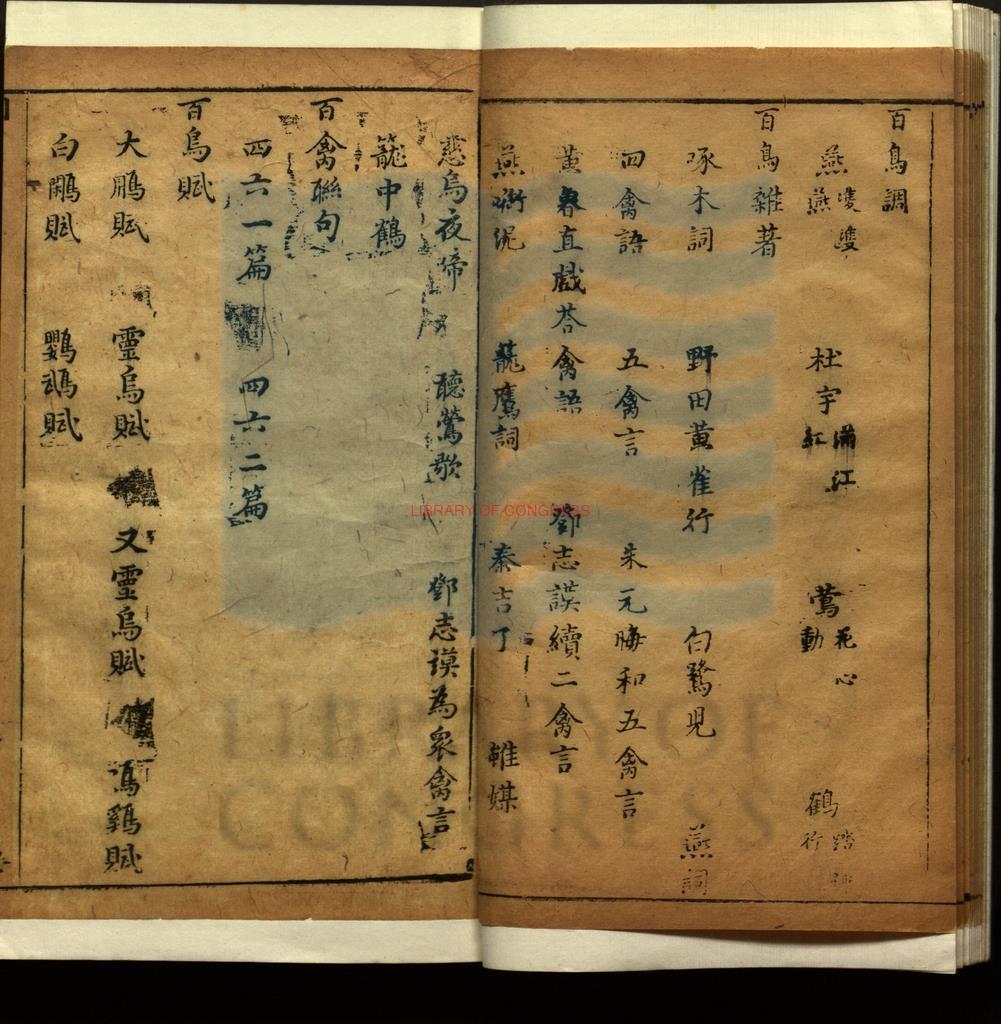 百鳥調
燕 雙雙燕 杜宇 滿江紅 鶯 花心動 鶴 踏 行
百鳥雜著
啄木詞 野田黃雀行 白鷺兒 燕詞
四禽語 五禽言 朱元晦和五禽言
黃春直戲荅禽語 鄧志謨續二禽言
燕銜泥 籠鷹詞 秦吉了 雉媒
慈烏夜啼 聽鶯歌 鄧志謨為衆禽言
籠中鶴
百禽聯句
四六一篇 四六二篇
百鳥賦
大鵬賦 靈烏賦 又靈烏賦 馮鷄賦
白鷴賦 鸚鵡賦
LIBRARY OF CONGRESS